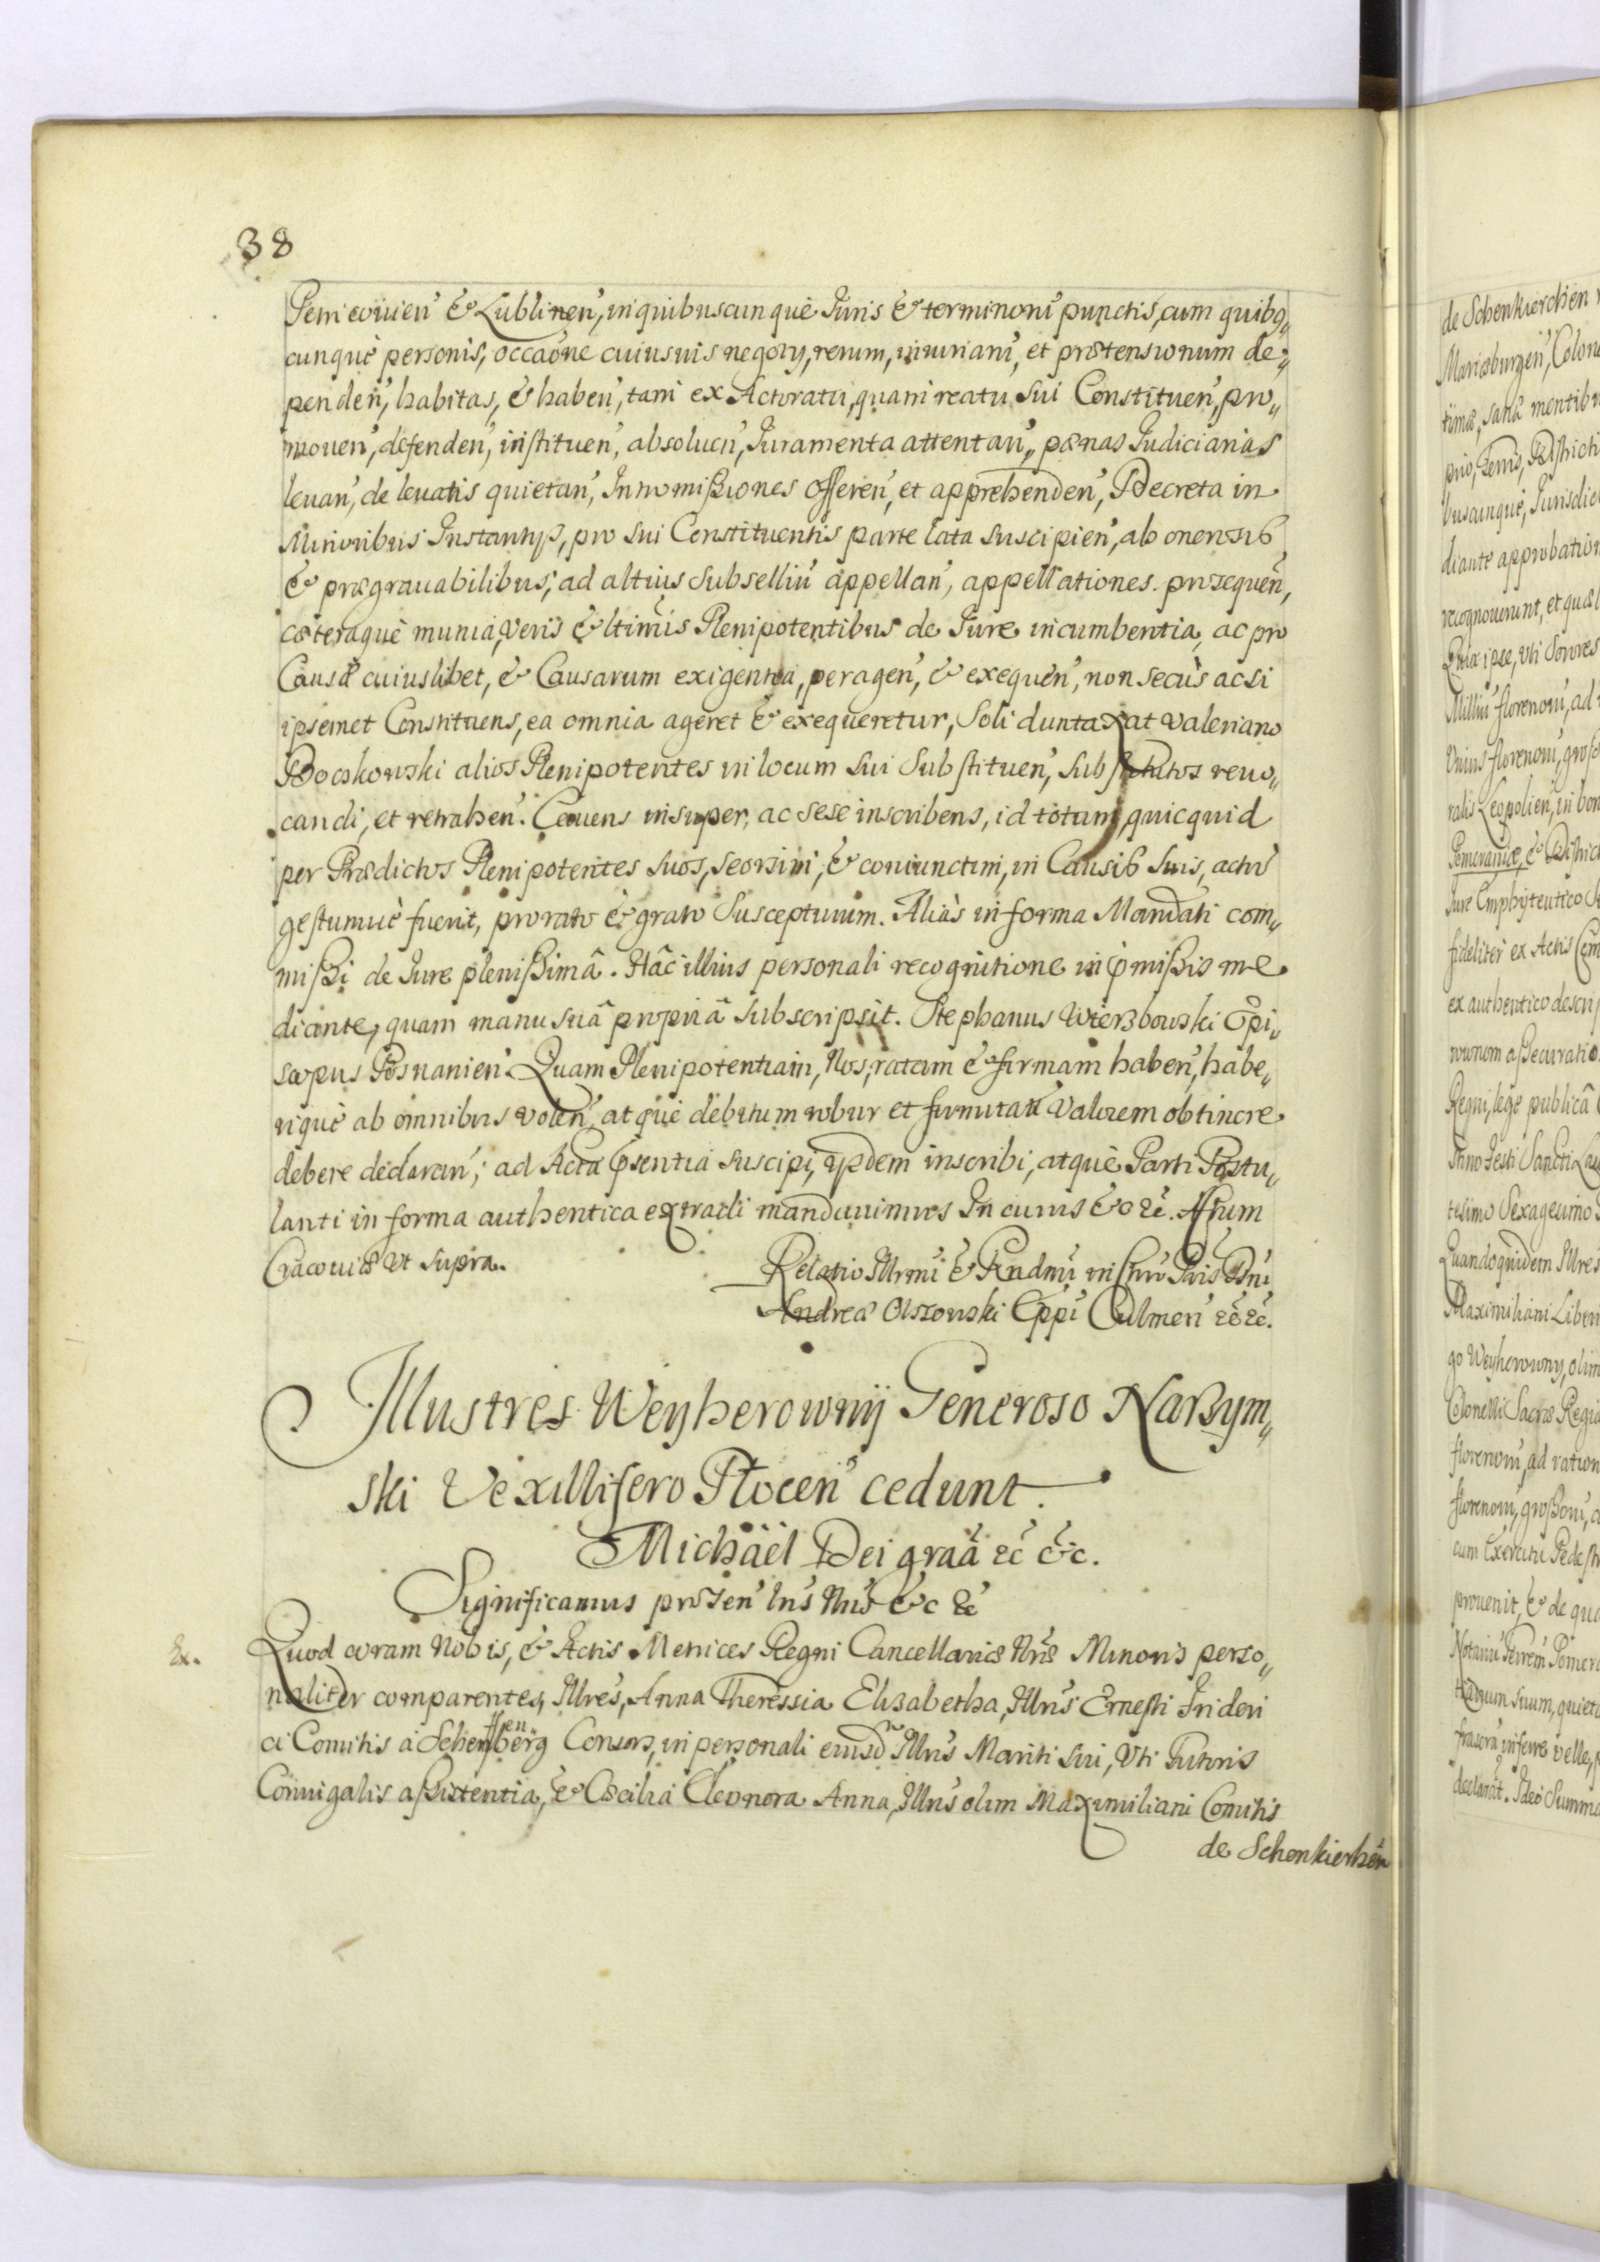 38
Petricovien̄ & Lublinen̄, in quibuscunquè Iuris & terminorū punctis, cum quibꝫ„
cunquè personis, occaōne cuiusuis negotÿ, rerum, iniuriarū, et prætensionum de„
penden̄, habitas, & haben̄, tam ex Actoratu, quam reatu sui Constituen̄, pro„
mouen̄, defenden̄, instituen̄, absoluen̄, Iuramenta attentan̄, pœnas Iudiciarias
leuan̄, de leuatis quietan̄, Intromißiones offeren̄, et apprehenden̄, Decreta in
Minoribus Instantÿs, pro sui Constituentis parte lata suscipien̄, ab onerosib
& prægrauabilibus, ad altius Subselliū appellan̄, appellationes prosequen̄,
cæteraquè munia, veris & ltimis Plenipotentibus de Iure incumbentia, ac pro
Causæ cuiuslibet, & Causarum exigentia, peragen̄, & exequen̄, non secùs ac si
ipsemet Constituens, ea omnia ageret & exequeretur, Soli duntaxat Valeriano
Boczkowski alios Plenipotentes in locum sui Substituen̄, substitutos reuo„
candi, et retrahen̄. Cauens insuper, ac sese inscribens, id totum, quicquid
per Prædictos Plenipotentes suos, seorsim, & coniunctim, in Causib suis, actū
gestumuè fuerit, pro rato & grato Suscepturum. Aliàs in forma Mandati com„
mißi de Iure plenißimâ. Hâc illius personali recognitione in p̄mißis me
diante, quam manu suâ propriâ subscripsit. Stephanus Wierzbowski Epi„
scopus Posnanien̄. Quam Plenipotentiam, Nos, ratam & firmam haben̄, habe„
riquè ab omnibus volen̄, atquè debitum robur et firmitatis Valorem obtinere
debere declaran̄, ad Acta p̄sentia suscipi, ÿsdem inscribi, atquè Parti Postu„
lanti in forma authentica extradi mandauimus In cuius & c ꝛc̄. Actum
Cracouiæ Vt supra.
Relatio Illrmi & Rndmi in Chrō Pris Dn̄i
Andreæ Olszowski Epp̄i Culmen̄ ꝛc̄ ꝛc̄.
Illustres Weyherownÿ Generoso Narzym„
ski Vexillifero Płocen̄ cedunt.
Michaël Dei graā ꝛc̄ & c.
Significamus præsen̄ lr̄is Nr̄is & c ꝛc̄
Ex.
Quod coram Nobis, & Actis Metrices Regni Cancellariæ Nr̄æ Minoris perso„
naliter comparentes, Illres, Anna Theressia Elisabetha, Illris Ernesti Frideri
ci Comitis à Schenberg Consors, in personali eiusd Illris Mariti sui, Vti Tutoris
Coniugalis aßistentia, & Cæcilia Eleonora Anna, Illris olim Maximiliani Comitis
de Schenkierhen
de Schenkierchen
Mariæburgen̄, Colon
timæ, sanæ mentib
recognouerunt, et quæ
Quia ipsæ, Vti Sorores
Milliū florenorū, ad
Vnius florenorū, gross
ralis Leopolien̄, in bon
Pomeraniæ, & District
Iure Emphÿteutico
fideliter ex Actis
ex authentico descri
Regni, lege publicâ
Anno Festi Sancti
tesimo Sexagesimo
Quandoquidem Illres
Maximiliani Liberi
go Weyherowny, olim
Colonelli Sacræ Regia
florenorū, ad ration
florenorū, grossorū, a
cum Exercitu Pedest
prouenit, & de qua